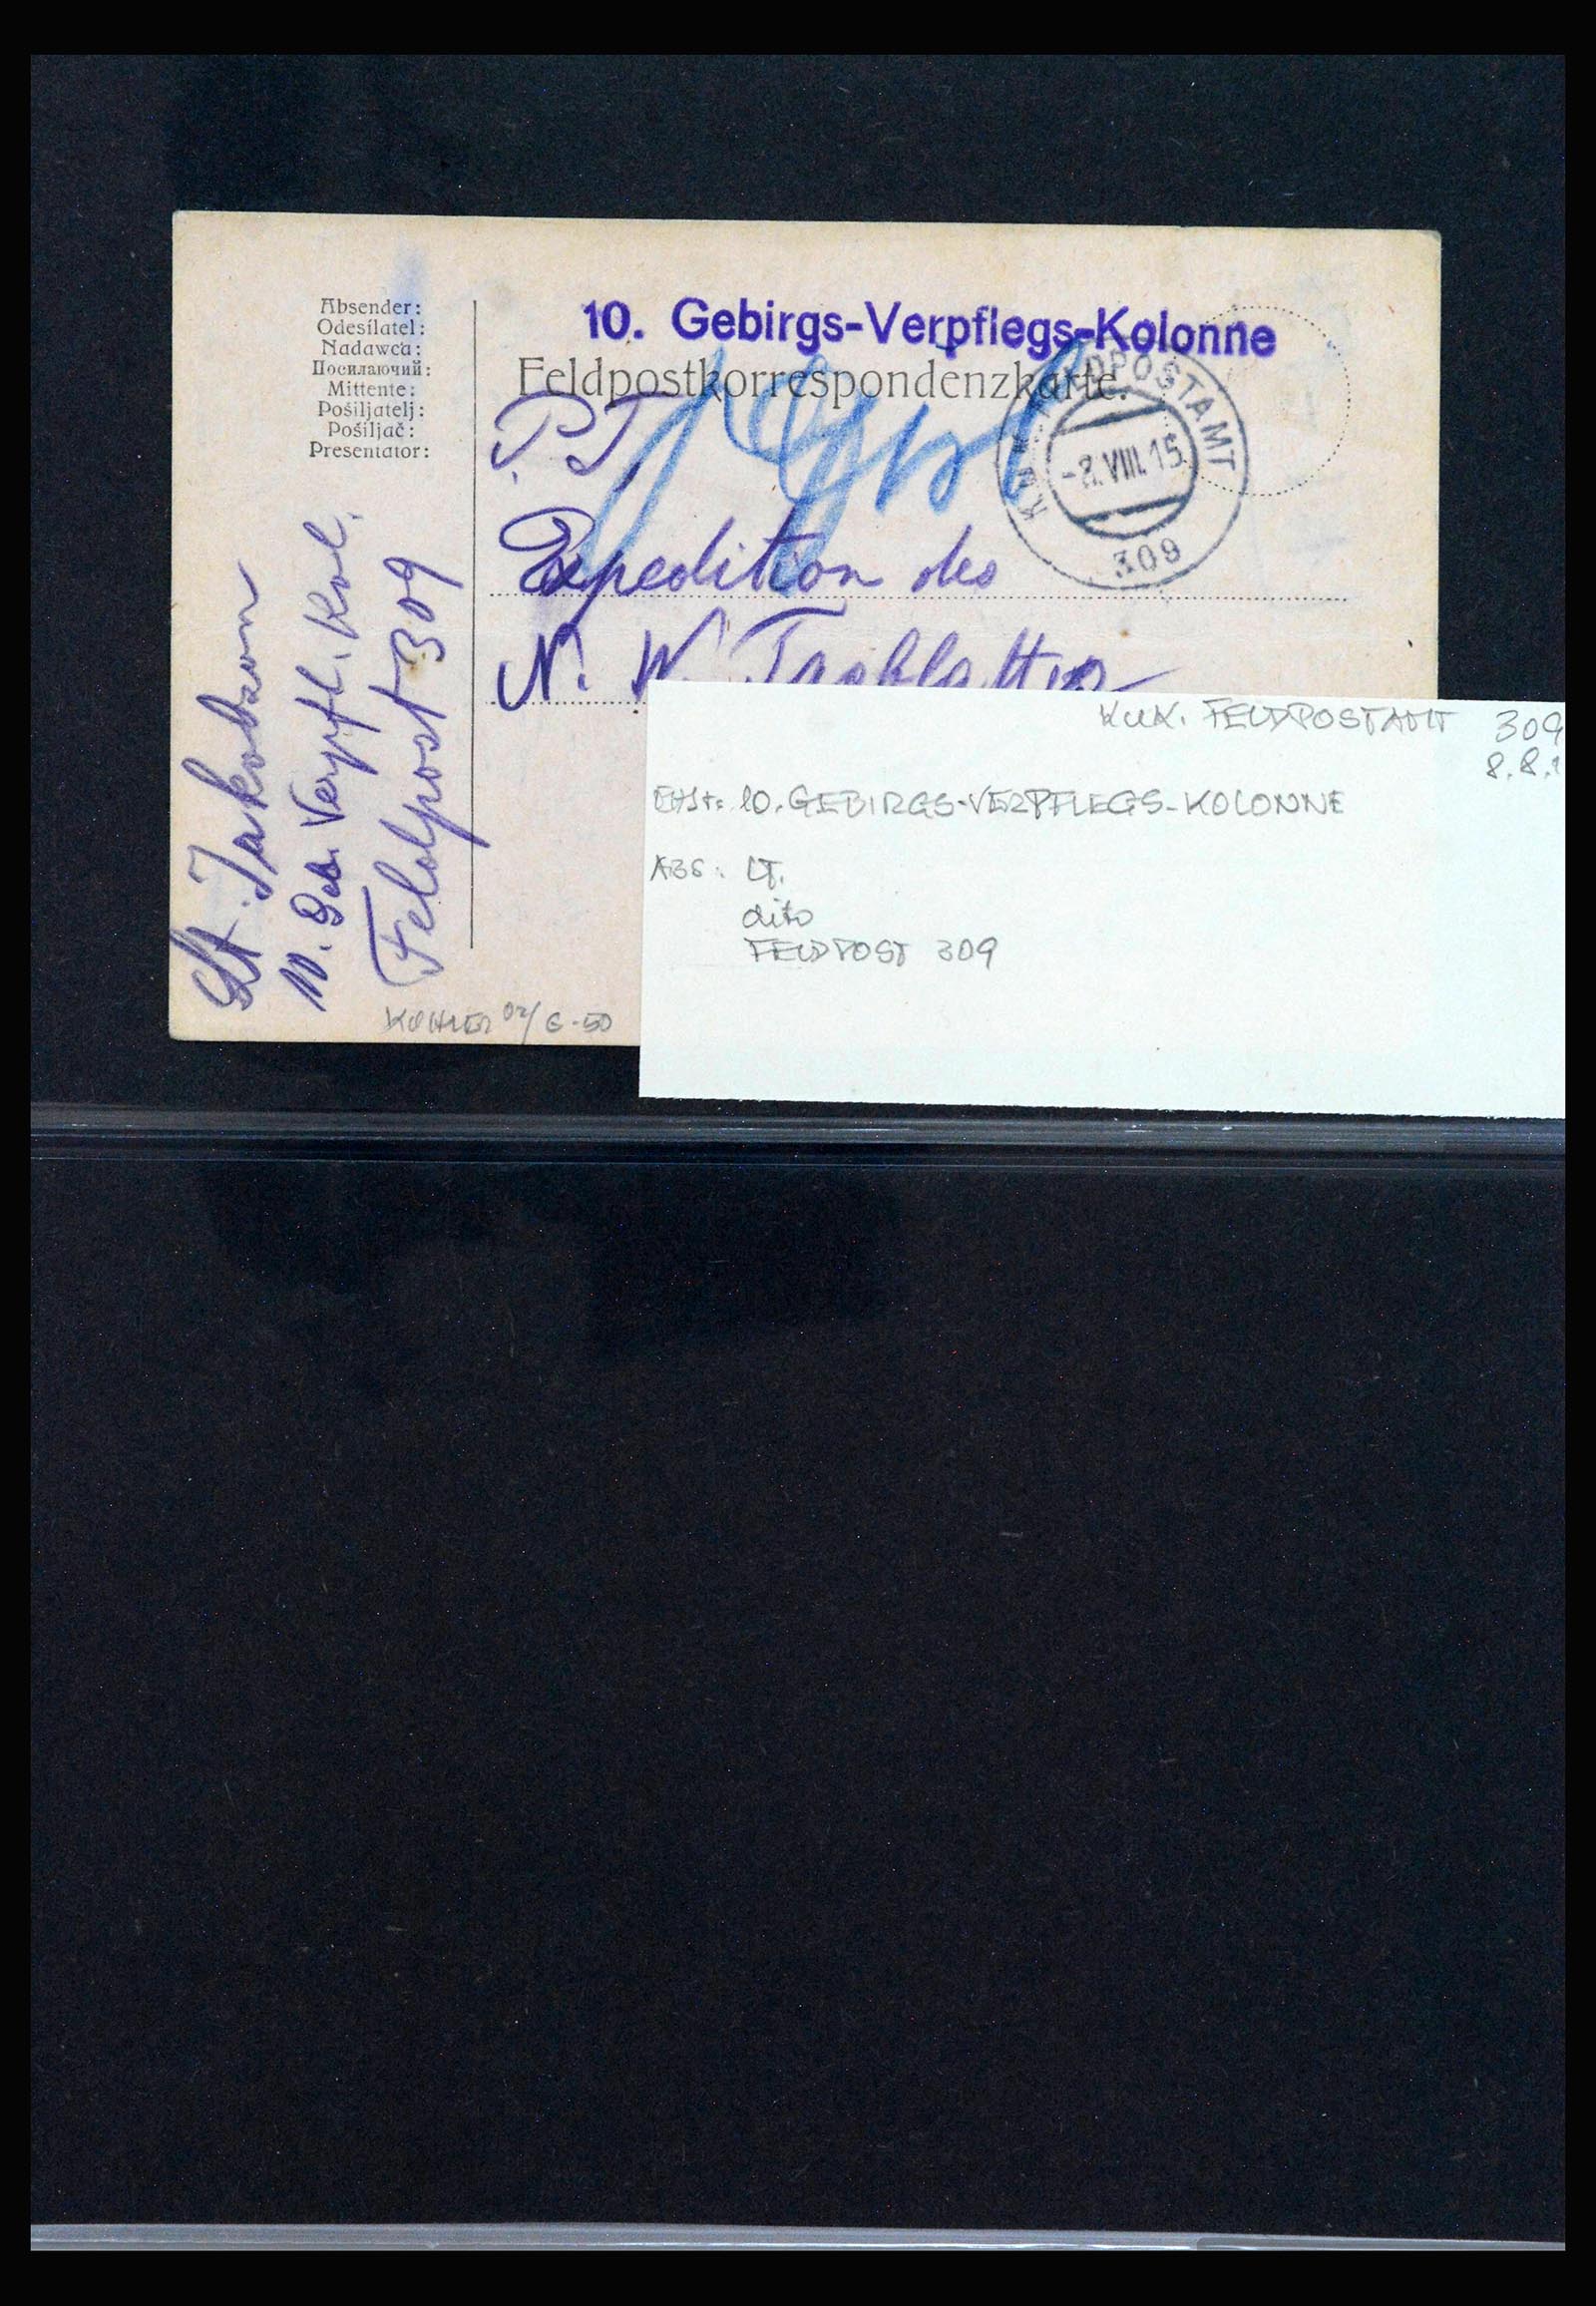 Absender:
Odesílatel:
Nadawca:
Посилаючий:
Mittente:
Pošiljatelj:
Pošiljač:
Presentator:
10. Gebirgs-Verpflegs-Kolonne
Feldpostkorrespondenzkarte.
K.u.K. FELDPOSTAMT
-8.VIII.15
309
P.T.
Expedition des
N. W. Tagblattes
Lt. Jakobson
10. Geb. Verpfl. Kol.
Feldpost 309
KOHLER 02/ 6.-50
K.u.K. FELDPOSTAMT 309
8.8.1
10. GEBIRGS-VERPFLEGS-KOLONNE
ABS: LT.
dito
FELDPOST 309